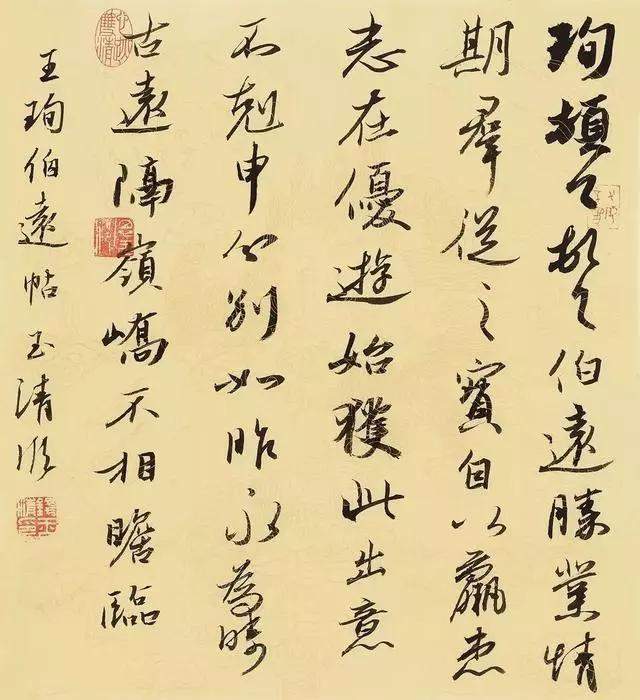 珣頓〻首〻伯遠勝業情
期羣從之寶自以羸患
志在優遊始獲此出意
不剋申分別如昨永為疇
古遠隔嶺嶠不相瞻臨
王珣伯遠帖玉清